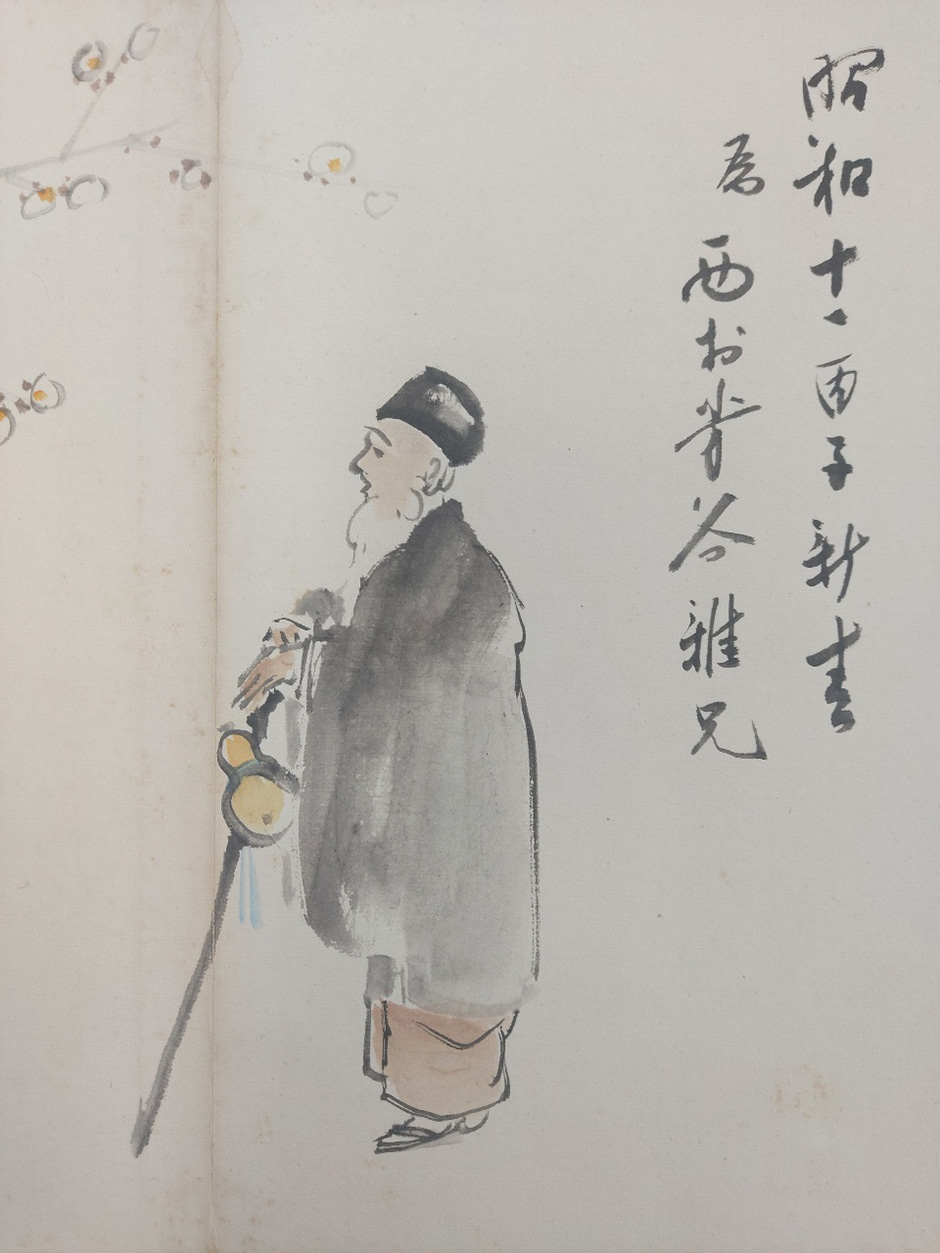 昭和十一丙子新春
為西村芳谷雅兄